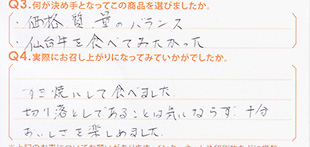 Q3.何が決め手となってこの商品を選びましたか。
・価格 質 量のバランス
・仙台牛を食べてみたかった
Q4.実際にお召し上がりになってみていかがでしたか。
すき焼にして食べました
切り落としであることは気にならず 十分
おいしさを楽しめました